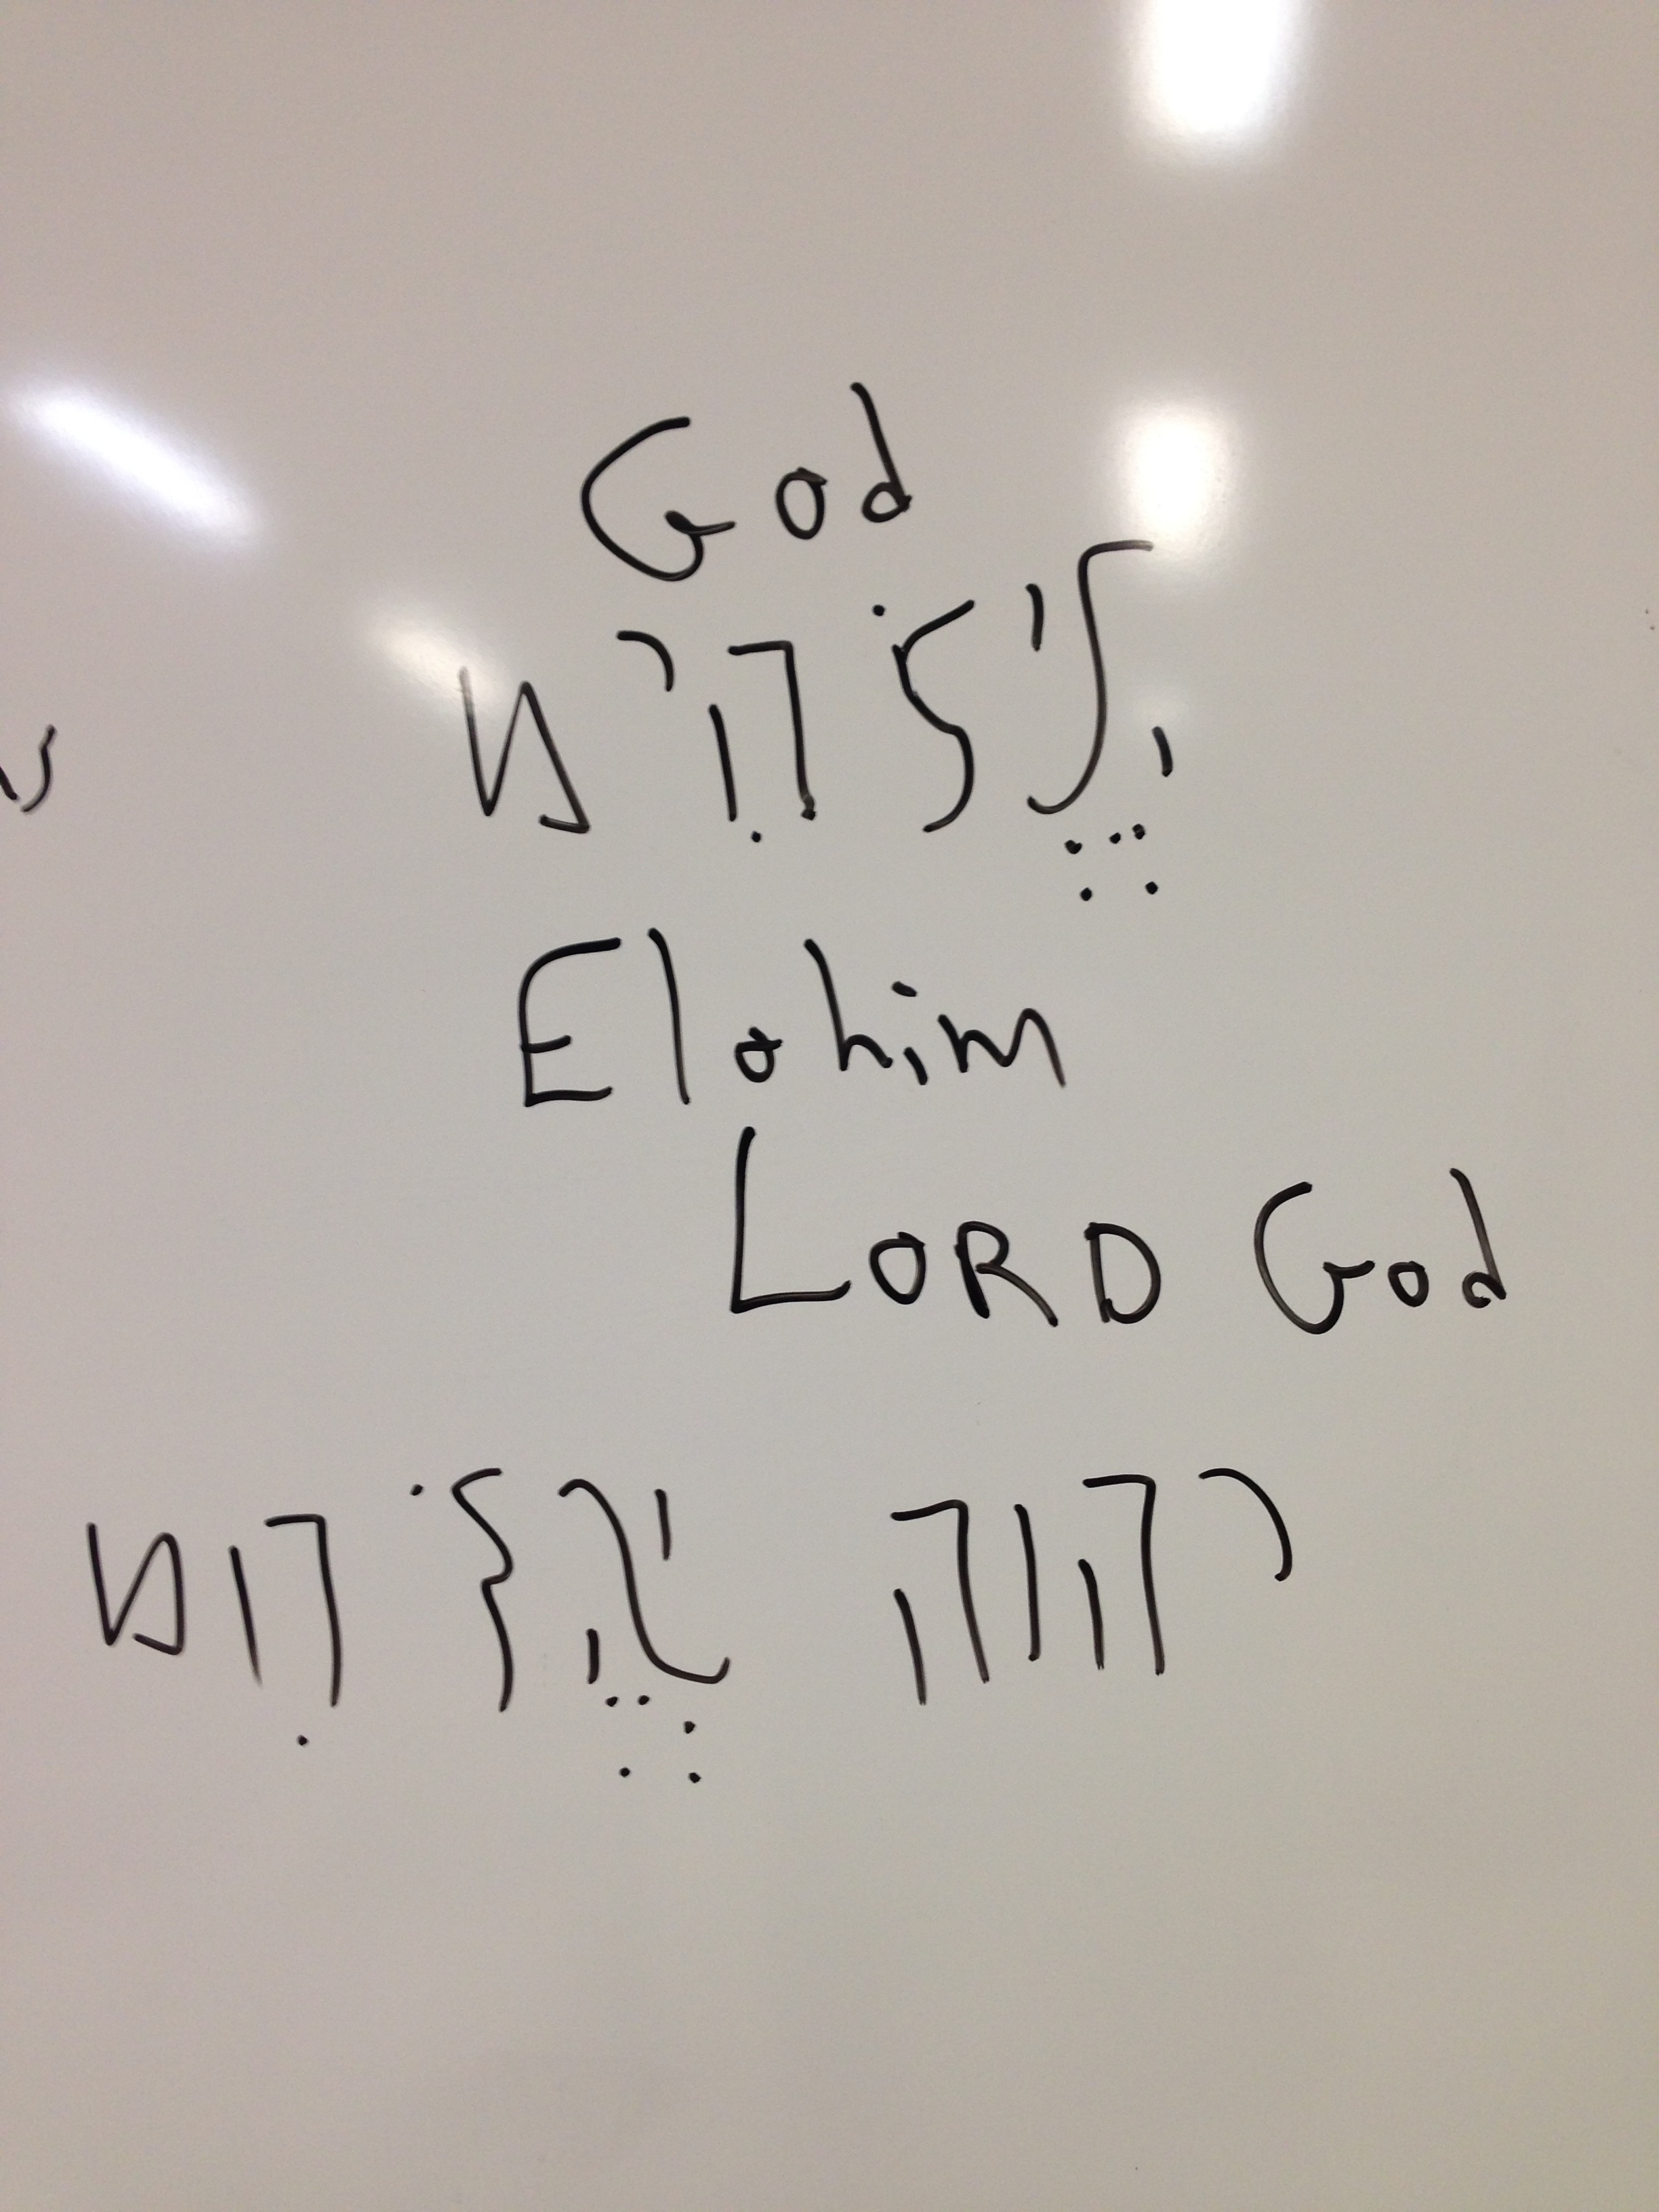 God
אֱלֹהִימ
Elohim
LORD God
יהוה אֱלֹהִמ